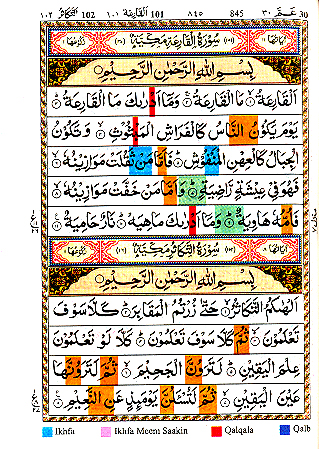 ١٠٢ التكاثر 102 ١٠١ القارعة 101 ٨٤٥ 845 ٣٠ عم 30
سُوْرَةُ الْقَارِعَةِ مَكِّيَّةٌ
بِسْمِ اللهِ الرَّحْمٰنِ الرَّحِيْمِ
اَلْقَارِعَةُ ۙ مَا الْقَارِعَةُ ۚ وَمَآ اَدْرٰىكَ مَا الْقَارِعَةُ ؕ
يَوْمَ يَكُوْنُ النَّاسُ كَالْفَرَاشِ الْمَبْثُوْثِ ۙ وَتَكُوْنُ
الْجِبَالُ كَالْعِهْنِ الْمَنْفُوْشِ ؕ فَاَمَّا مَنْ ثَقُلَتْ مَوَازِيْنُهٗ ۙ
فَهُوَ فِيْ عِيْشَةٍ رَّاضِيَةٍ ؕ وَاَمَّا مَنْ خَفَّتْ مَوَازِيْنُهٗ ۙ
فَاُمُّهٗ هَاوِيَةٌ ؕ وَمَآ اَدْرٰىكَ مَاهِيَهْ ؕ نَارٌ حَامِيَةٌ
سُوْرَةُ التَّكَاثُرِ مَكِّيَّةٌ
بِسْمِ اللهِ الرَّحْمٰنِ الرَّحِيْمِ
اَلْهٰىكُمُ التَّكَاثُرُ ۙ حَتّٰى زُرْتُمُ الْمَقَابِرَ ؕ كَلَّا سَوْفَ
تَعْلَمُوْنَ ۙ ثُمَّ كَلَّا سَوْفَ تَعْلَمُوْنَ ؕ كَلَّا لَوْ تَعْلَمُوْنَ
عِلْمَ الْيَقِيْنِ ؕ لَتَرَوُنَّ الْجَحِيْمَ ۙ ثُمَّ لَتَرَوُنَّهَا
عَيْنَ الْيَقِيْنِ ۙ ثُمَّ لَتُسْئَلُنَّ يَوْمَئِذٍ عَنِ النَّعِيْمِ
Ikhfa Ikhfa Meem Saakin Qalqala Qalb